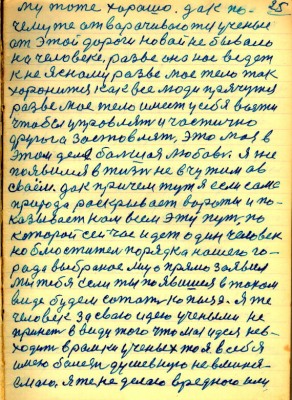 му тоже хорошо. Дак по- 25
чему же отварачиваются ученые
от этой дороги новай не бывало
на человеке, разве она нас ведет
к не ясному разве мое тело так
хоронится как все люди прячутся
разве мое тело имеет у себя власти
чтобы управлят и частично
другога заставлят, это моя в
этом деле балшая любовь. Я не
появился в жизни не в чужим а в
своём. Дак причем тут я если сама
природа раскрывает вароты и по-
казывает нам всем этот пут по
которой сейчас идет один человек
ко блюстителем порядка нашего го-
рода выбраное му прямо заявил
мы тебя если ты появишся в таком
виде будем сотат копызя. Я же
человек здеваю идею ученым не
примет в виду того что моя идея нев-
ходит в рамки ученых то я в себя
имею балезн душевную не вменя-
емаю, я же не делаю вредного или